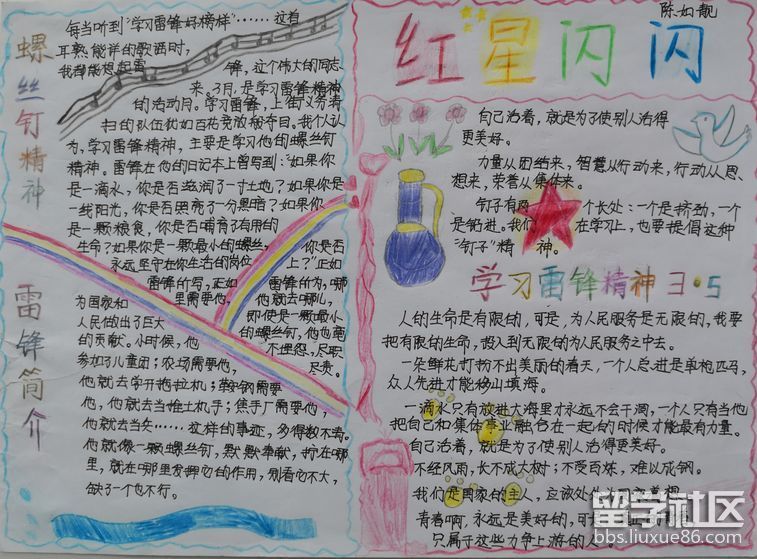 螺丝钉精神
每当听到"学习雷锋好榜样"……这首
耳熟能详的歌曲时,
我都能想起雷锋,这个伟大的同志
来。3月,是学习雷锋精神
的活动月。学习雷锋,上街义务清
扫的队伍犹如百花竞放般夺目。我个人认
为,学习雷锋精神,主要是学习他的螺丝钉
精神。雷锋在他的日记本上曾写到:"如果你
是一滴水,你是否滋润了一寸土地?如果你是
一线阳光,你是否照亮了一分黑暗?如果你
是一颗粮食,你是否哺育了有用的
生命?如果你是一颗最小的螺丝钉,你是否
永远坚守在你生活的岗位上?"正如
雷锋所写,正如雷锋所为,哪
里需要他,他就去哪儿,
即使是一颗最小
的螺丝钉,他也毫
不埋怨,尽职
尽责。
雷锋简介
为国家和
人民做出了巨大
的贡献。小时候,他
参加了儿童团;农场需要他,
他就去学开拖拉机;鞍钢需要
他,他就去当推土机手;焦子厂需要他,
他就去当矣……这样的事迹,多得数不清。
他就像一颗螺丝钉,默默奉献,拧在哪
里,就在哪里发挥它的作用,别看它不大,
缺了一个也不行。
陈如靓
红星闪闪
自己活着,就是为了使别人活得
更美好。
力量从团结来,智慧从行动来,行动从思
想来,荣誉从集体来。
钉子有两个长处:一个是挤劲,一个
是钻进。我们在学习上,也要提倡这种
"钉子"精神。
学习雷锋精神3·5
人的生命是有限的,可是,为人民服务是无限的,我要
把有限的生命,投入到无限的为人民服务之中去。
一朵鲜花打扮不出美丽的春天,一个人先进是单枪匹马,
众人先进才能移山填海。
一滴水只有放进大海里才永远不会干涸,一个人只有当他
把自己和集体事业融合在一起的时候才能最有力量。
自己活着,就是为了使别人活得更美好。
不经风雨,长不成大树;不受百炼,难以成钢。
我们是国家的主人,应该处处为国家着想。
青春啊,永远是美好的,可是
只属于这些力争上游的人
留学社区
bbs.liuxue86.com